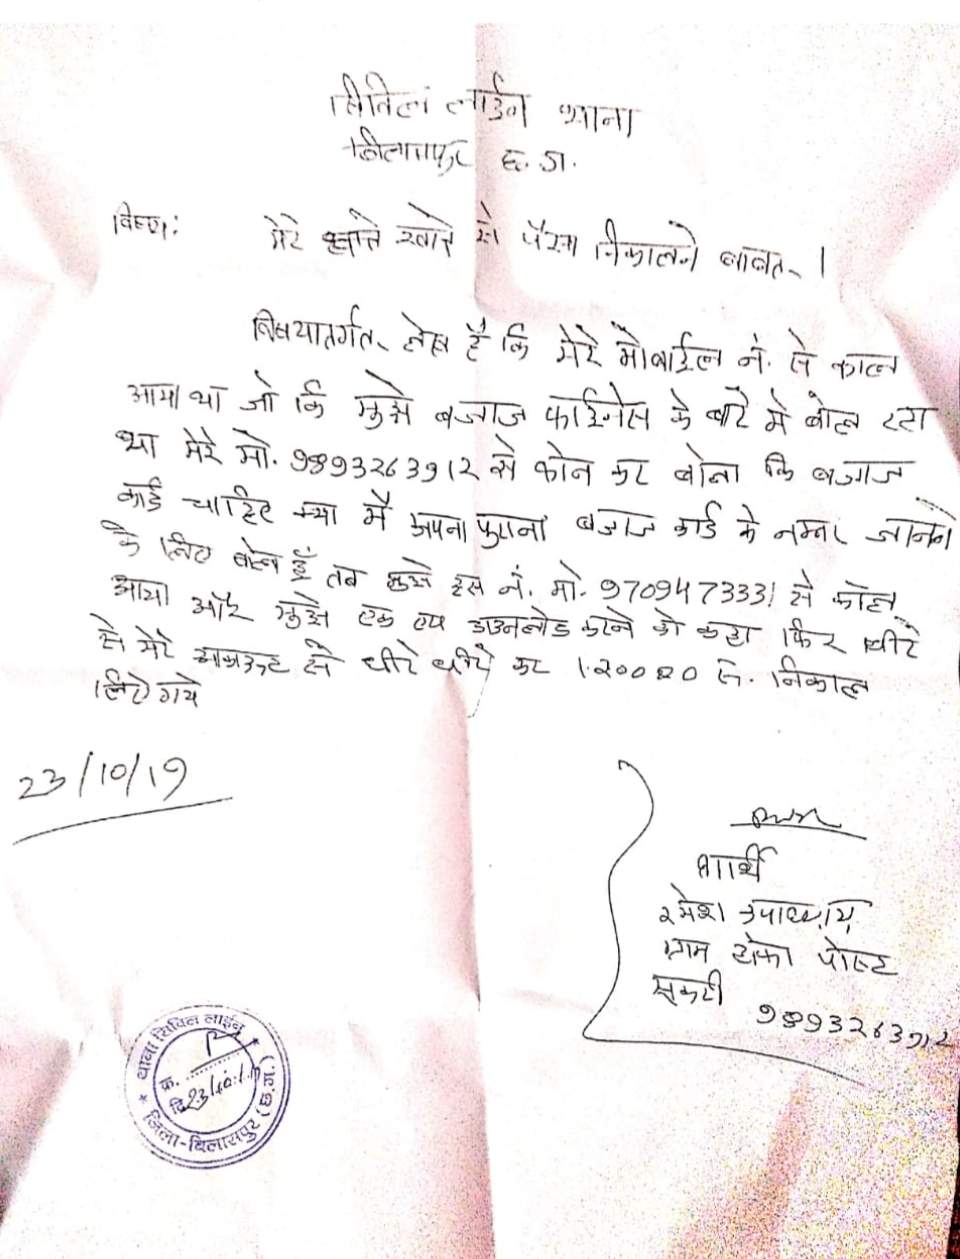 सिविल लाईन थाना
बिलासपुर छ.ग.
विषय: मेरे खाते से पैसा निकालने बाबत् ।
विषयातर्गत लेख है कि मेरे मोबाईल नं. से काल
आया था जो कि मुझे बजाज फाईनेंस के बारे में बोल रहा
था मेरे मो. 9893263912 से फोन कर बोला कि बजाज
कार्ड चाहिए क्या मैं अपना पुराना बजाज कार्ड के नम्बर जानने
के लिए बोला हूँ तब मुझे इस नं. मो. 9709473331 से कॉल
आया और मुझे एक एप डाउनलोड करने को कहा फिर धीरे
से मेरे आकाउन्ट से धीरे धीरे कर 120000 रू. निकाल
लिऐ गये
23/10/19
प्रार्थी
रमेश उपाध्याय
ग्राम पोस्ट
सकरी
9893263912
थाना सिविल लाईन
क्र.
दि. 23/10/19
जिला-बिलासपुर (छ.ग.)